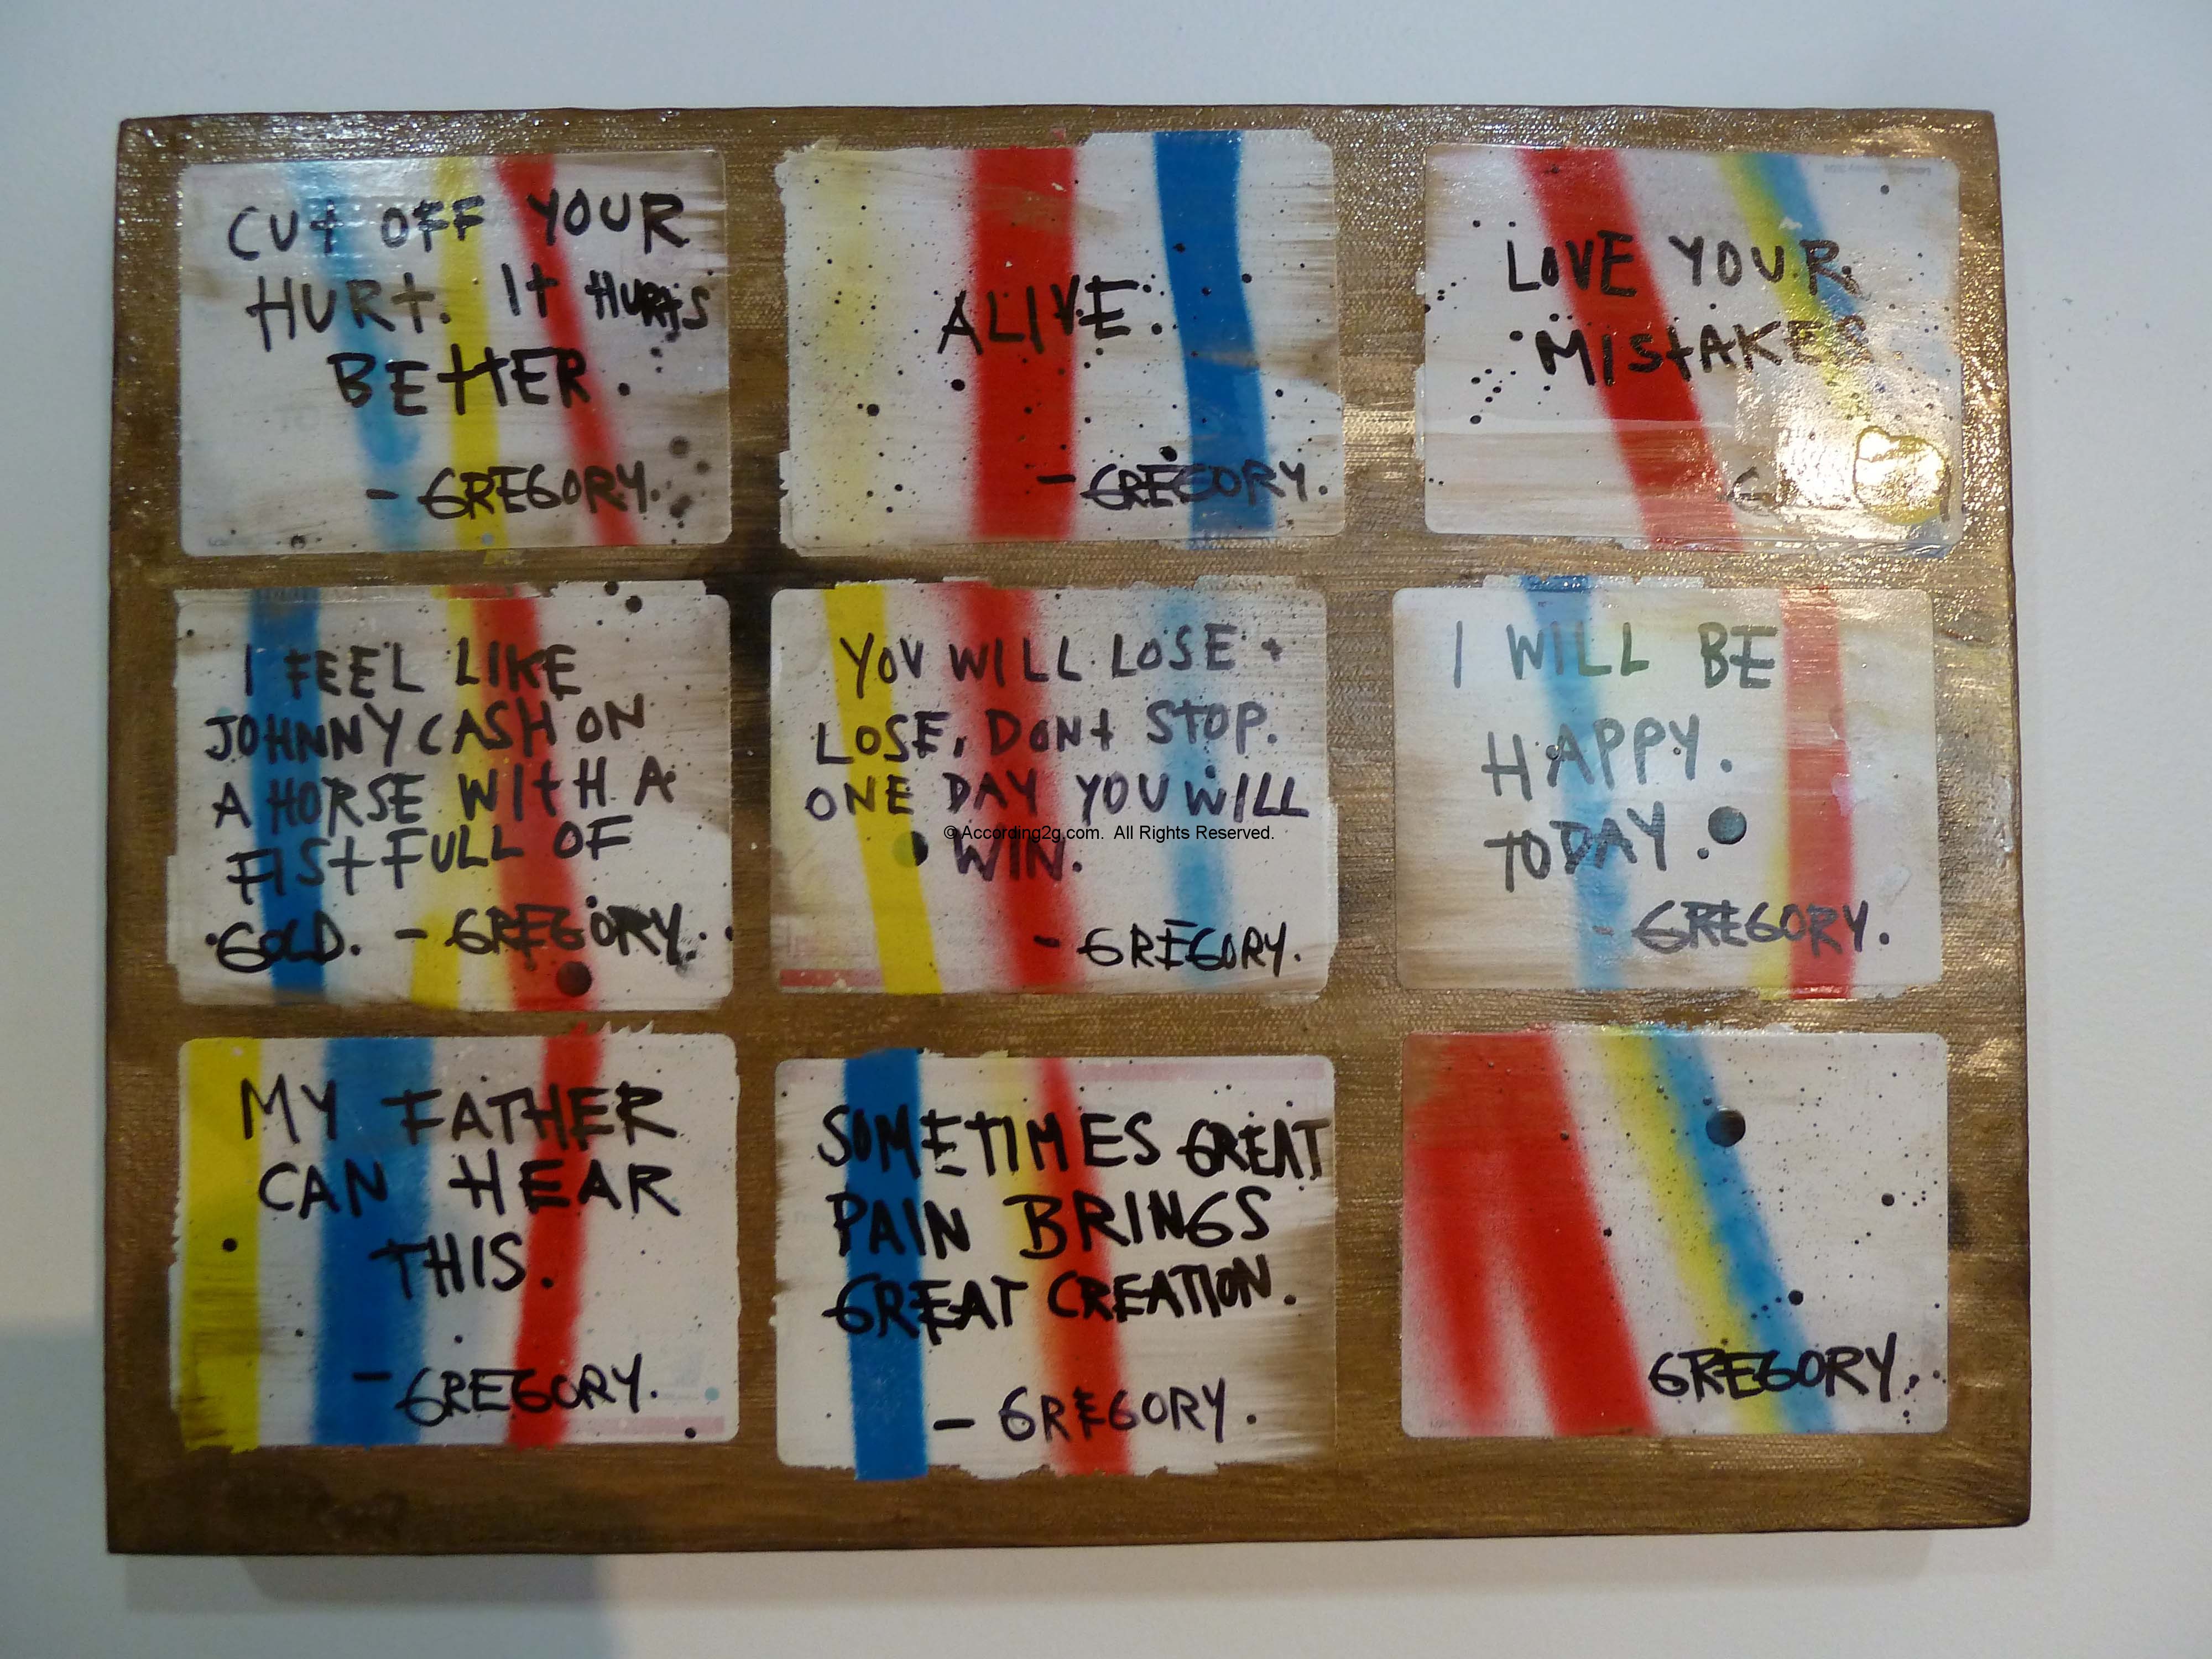 CUt OFF YOUR
HURt. It HURtS
BEttER.
- GREGORY.
ALIVE.
- GREGORY.
LOVE YOUR
MIStAKES
I FEEL LIKE
JOHNNY CASH ON
A HORSE WItH A
FIStFULL OF
GOLD. - GREGORY.
YOU WILL LOSE +
LOSE, DONt STOP.
ONE DAY YOU WILL
WIN.
- GREGORY.
© According2g.com. All Rights Reserved.
I WILL BE
HAPPY.
TODAY.
- GREGORY.
MY FATHER
CAN HEAR
THIS.
- GREGORY.
SOMETIMES GREAT
PAIN BRINGS
GREAT CREATION.
- GREGORY.
GREGORY.